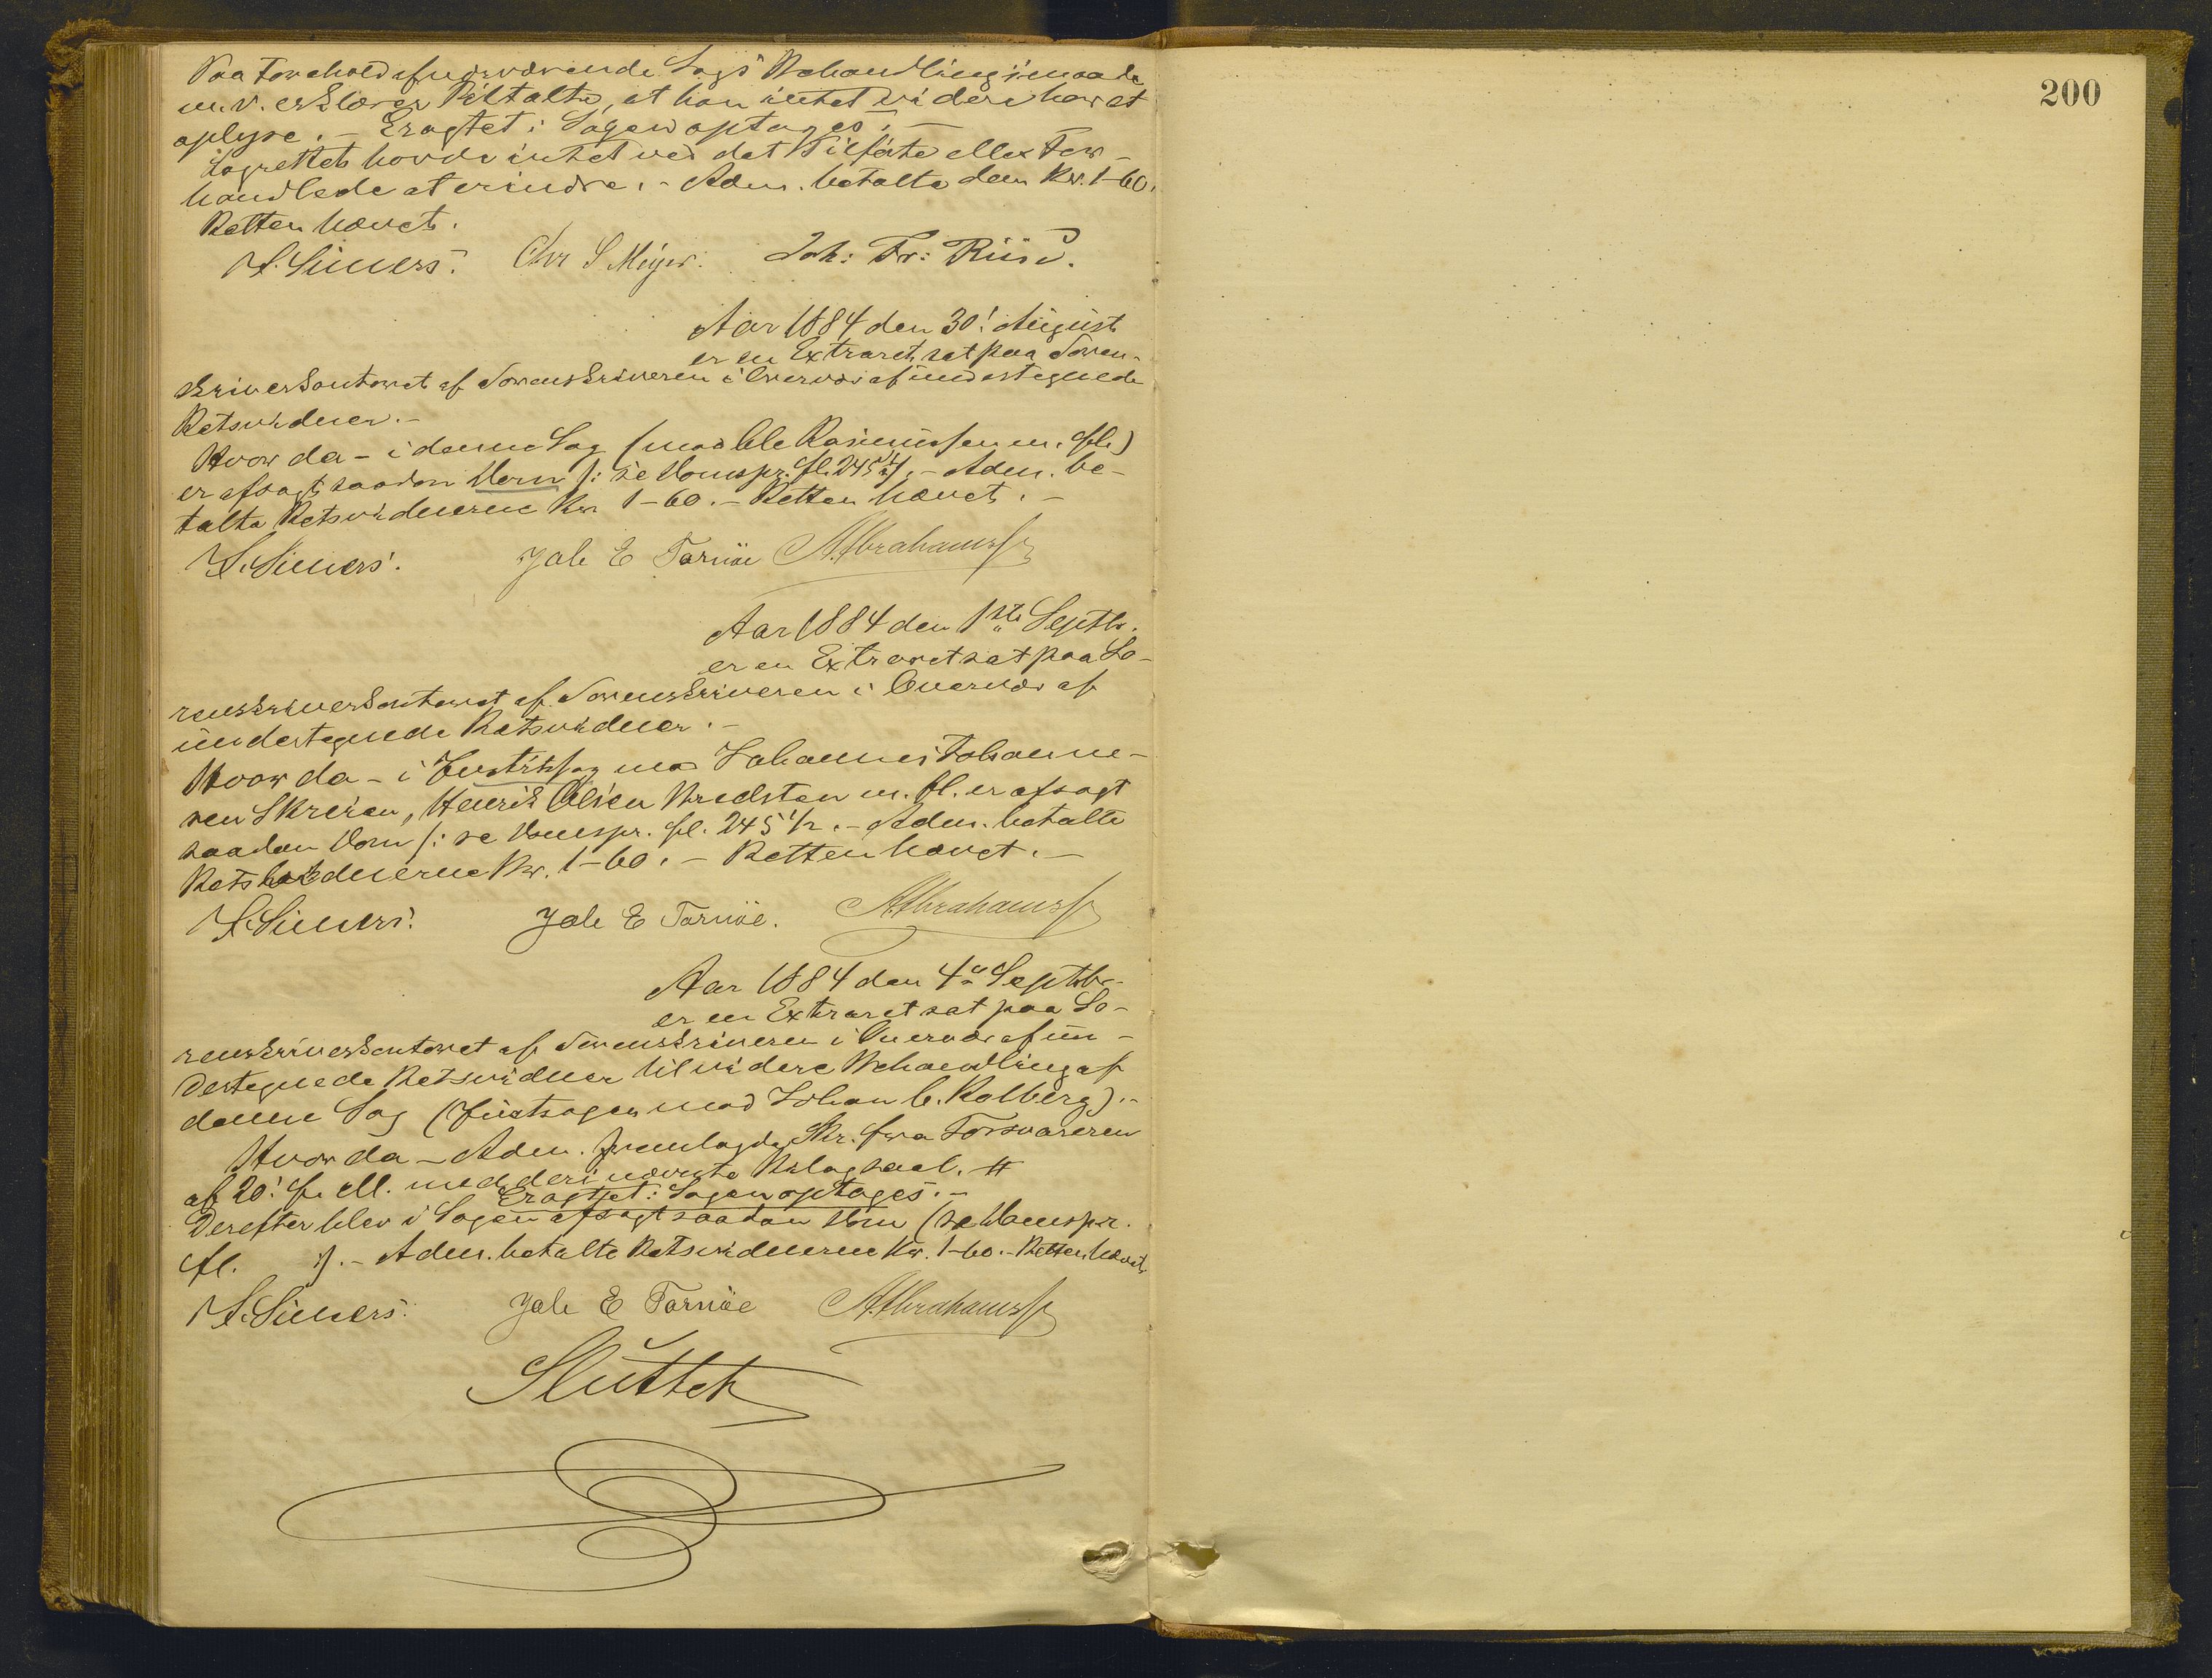 Paa Forehold af nærværende Sags Behandlingsmaade
m. v. erklærer Tiltalte, at han intet videre har at
oplyse. – Eragtet: Sagen optages. –
Lagrettet havde intet ved det Tilførte eller For-
handlede at erindre. – Adm. betalte dem Kr. 1-60.
Retten hævet.
S. Sivers. Chr S Meyer. Joh: Fr: Riis
Aar 1884 den 30! August
er en Extraret sat paa Soren-
skriverkontoret af Sorenskriveren i Overvær af undertegnede
Retsvidner. –
Hvor da – i denne Sag (mod Ole Rasmussen m. fl.)
er afsagt saadan Dom /: se Domspr. fl. 245 – Adm. be-
talte Retsvidnerne Kr. 1-60. – Retten hævet. –
S. Sivers. E Tornöe A. Abrahamss
Aar 1884 den 1ste Septbr.
er en Extraret sat paa So-
renskriverkontoret af Sorenskriveren i Overvær af
undertegnede Retsvidner. –
Hvor da – i Justitssag mod Johannes Johanne-
sen Skreien, Henrik Olsen Bredsten m. fl. er afsagt
saadan Dom /: se Domspr. fl. 245 1/2. – Adm. betalte
Retsvidnerne Kr. 1-60. – Retten hævet. –
S. Sivers. E Tornöe. A. Abrahamss
Aar 1884 den 4de Septbr.
er en Extraret sat paa So-
renskriverkontoret af Sorenskriveren i Overvær af un-
dertegnede Retsvidner til videre Behandling af
denne Sag (Justitssagen mod Johan C. Kolberg). –
Hvor da – Adm. fremlagde Skr. fra Forsvareren
af 20! f. M. med deri nævnte Bilag saal. #
Eragtet: Sagen optages. –
Derefter blev i Sagen afsagt saadan Dom (se Domspr.
fl. ). – Adm. betalte Retsvidnerne Kr. 1-60. – Retten hævet.
S. Sivers. E Tornöe A. Abrahamss
Sluttet
200